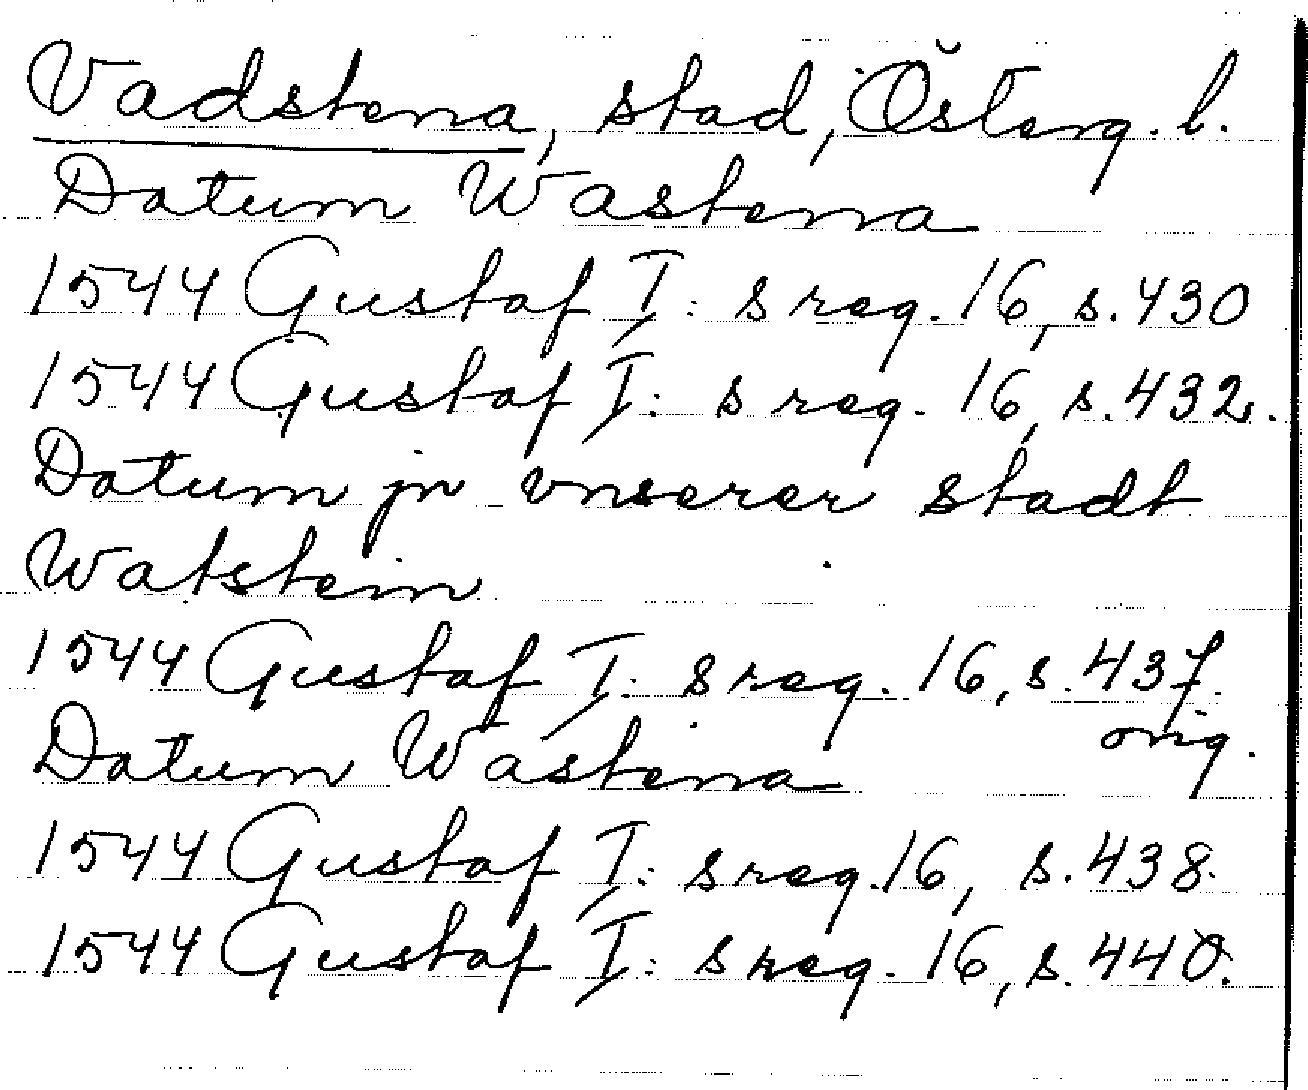 Vadstena, stad, Österg. l.
Datum Wastena
1544 Gustaf I: s reg. 16, s. 430
1544 Gustaf I: s reg. 16, s. 432.
Datum jn vnserer stadt
Watstein
1544 Gustaf I: s reg. 16, s. 437.
orig.
Datum Wastena
1544 Gustaf I: s reg. 16, s. 438.
1544 Gustaf I: s reg. 16, s. 440.